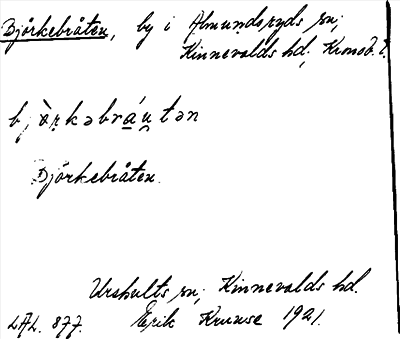 Björkebråten, by i Almundsryds sn;
Kinnevalds hd; Kronob. l.
Björkebråten.
Urshults sn; Kinnevalds hd.
LAL. 877. Erik Kruuse 1921.